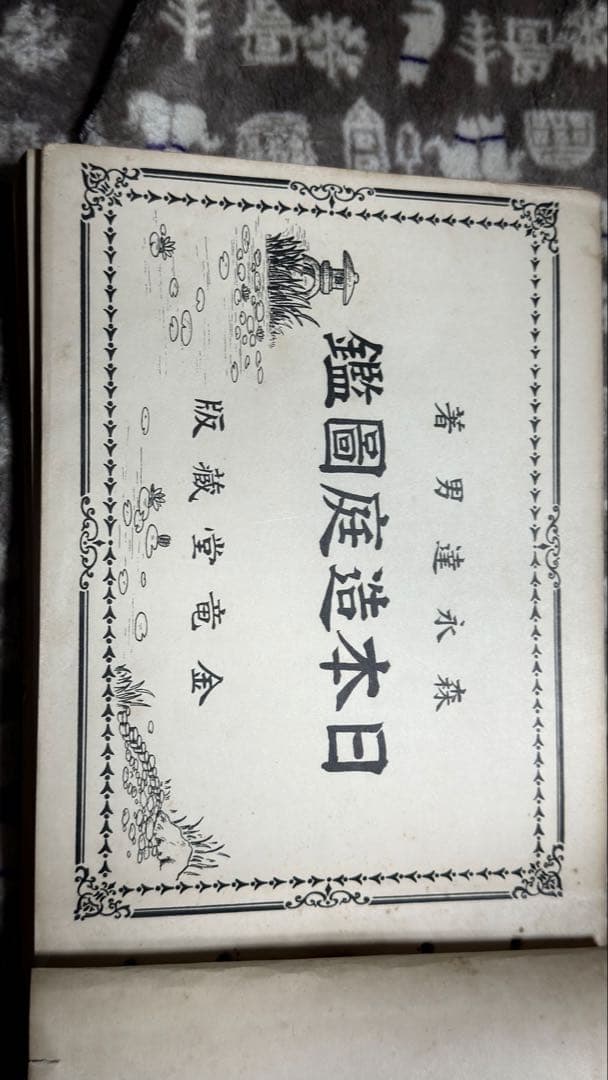 森永達男著
日本造庭圖鑑
金竜堂藏版